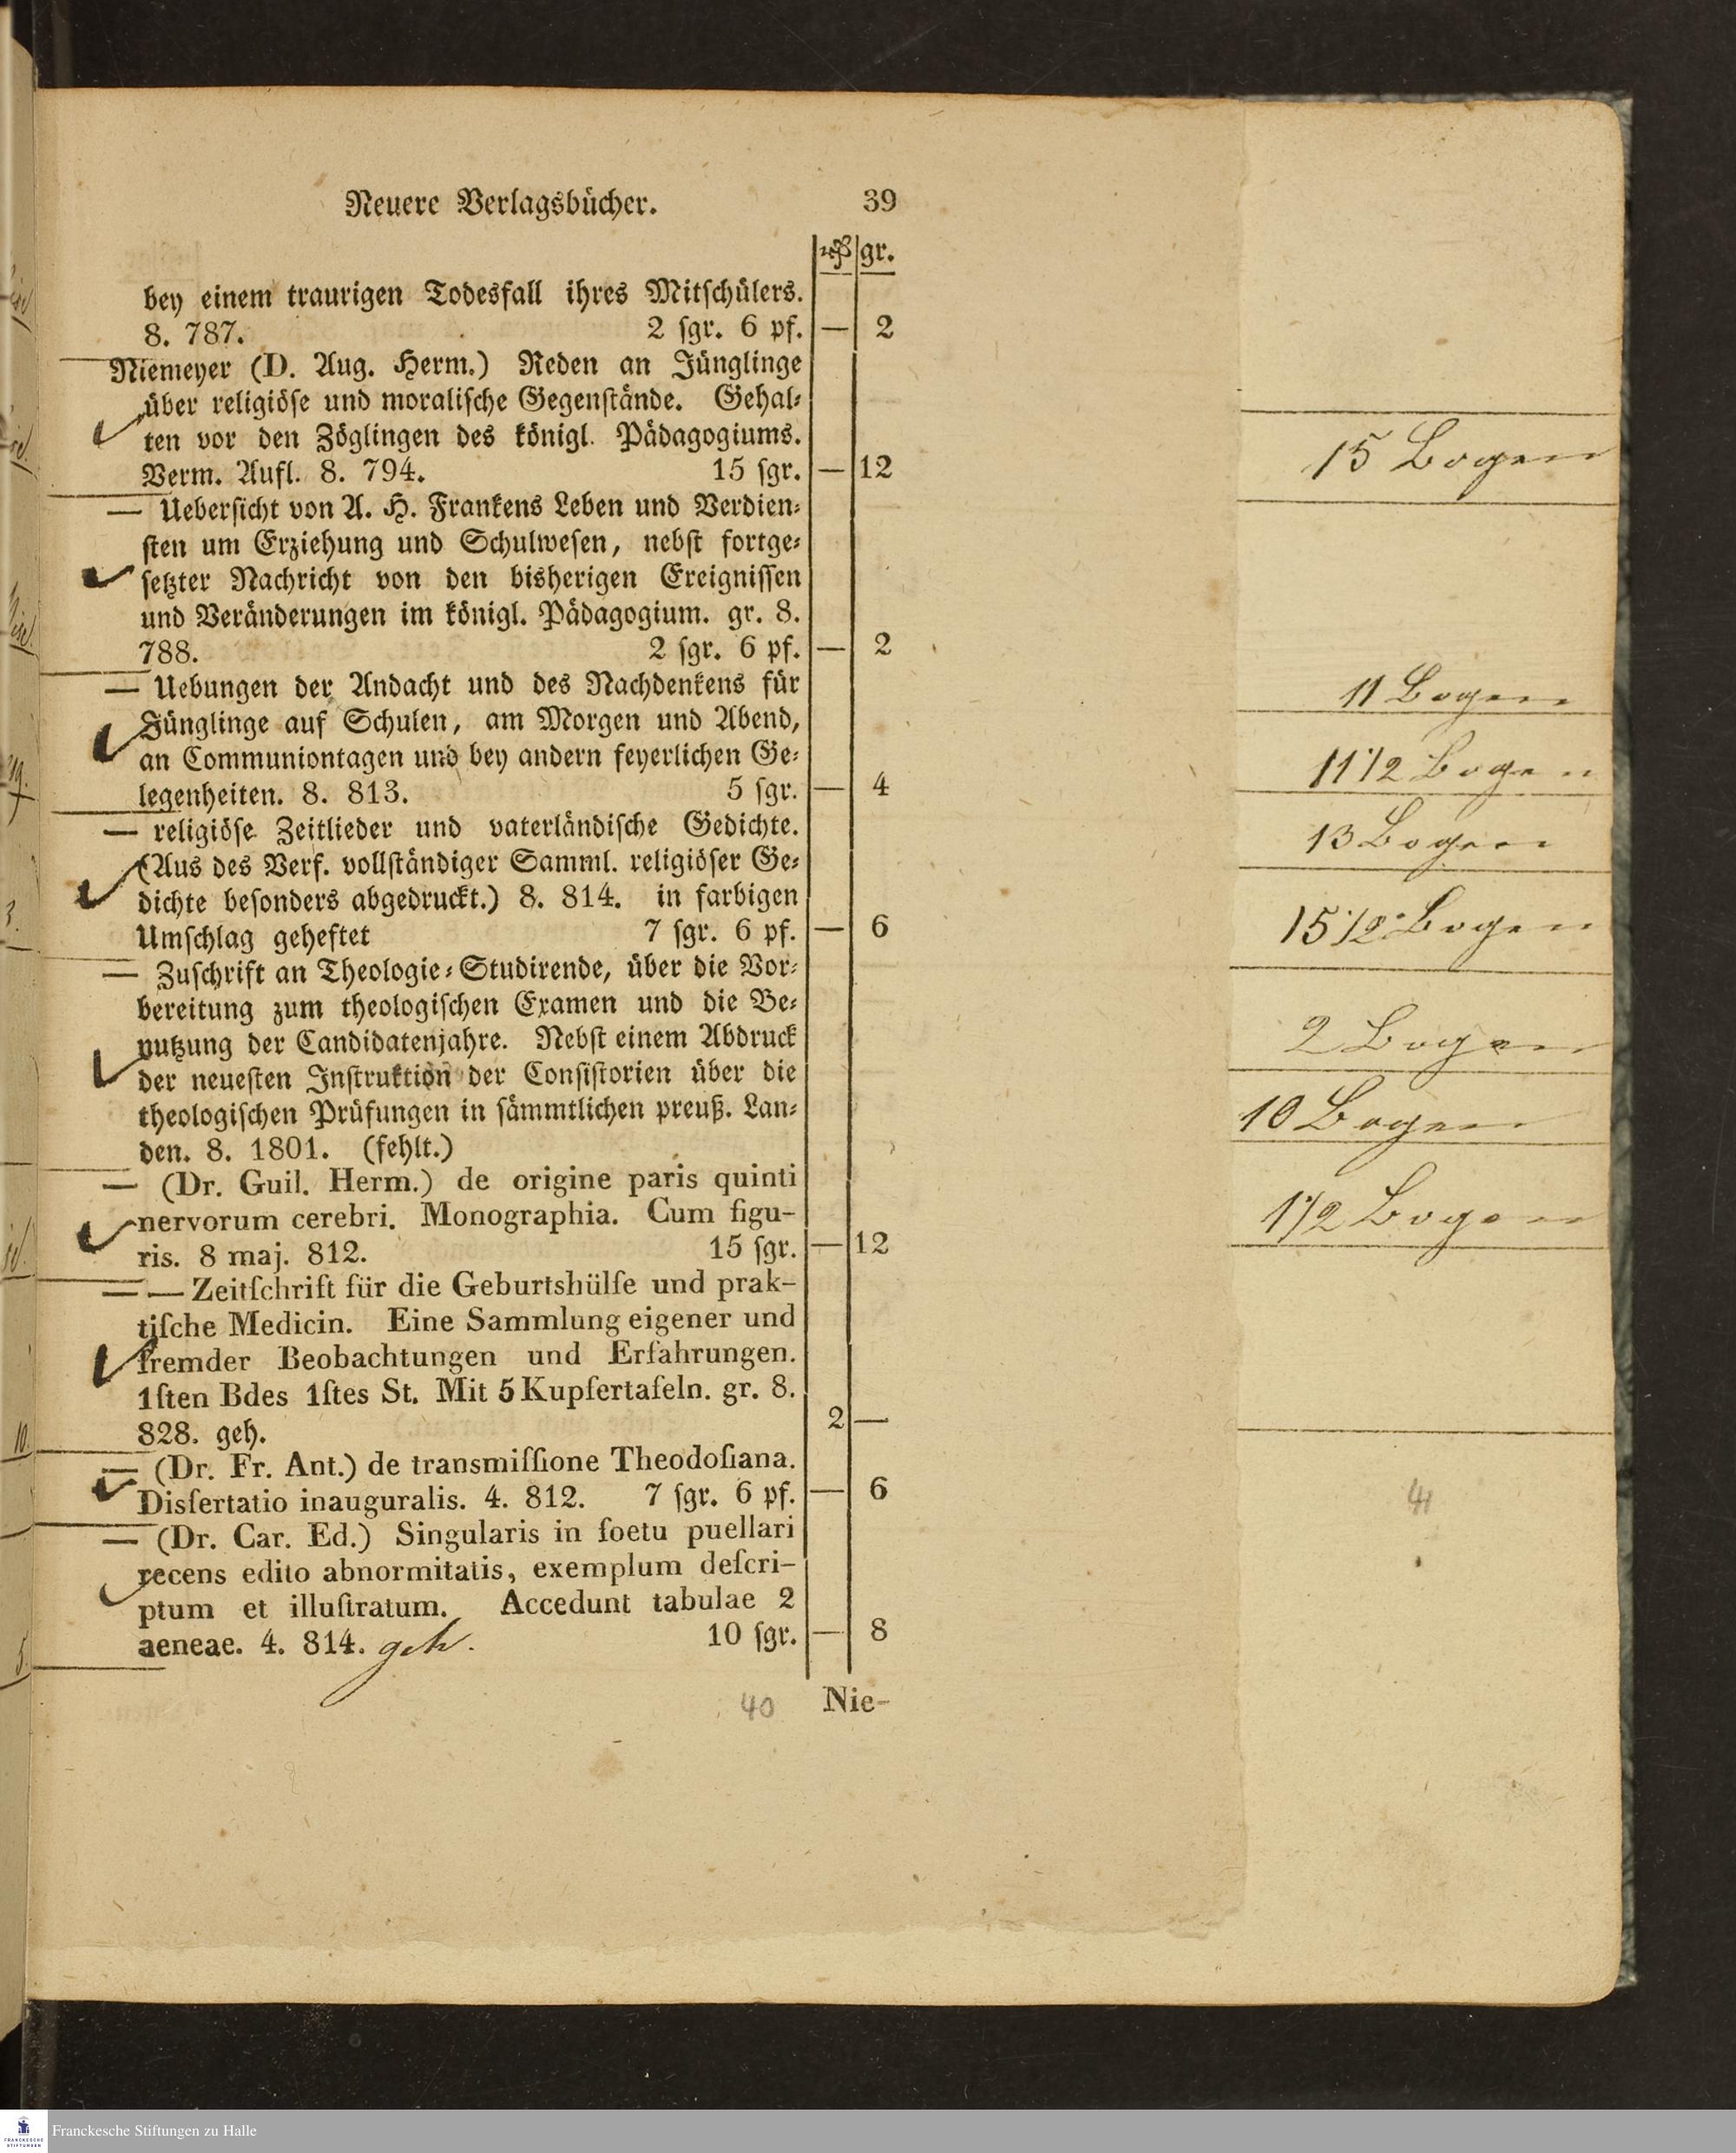 Neuere Verlagsbücher. 39
gr.
bey einem traurigen Todesfall ihres Mitschülers.
8. 787. 2 sgr. 6 pf. — 2
Niemeyer (D. Aug. Herm.) Reden an Jünglinge
über religiöse und moralische Gegenstände. Gehal-
ten vor den Zöglingen des königl. Pädagogiums.
Verm. Aufl. 8. 794. 15 sgr. — 12
— Uebersicht von A. H. Frankens Leben und Verdien-
sten um Erziehung und Schulwesen, nebst fortge-
setzter Nachricht von den bisherigen Ereignissen
und Veränderungen im königl. Pädagogium. gr. 8.
788. 2 sgr. 6 pf. — 2
— Uebungen der Andacht und des Nachdenkens für
Jünglinge auf Schulen, am Morgen und Abend,
an Communiontagen und bey andern feyerlichen Ge-
legenheiten. 8. 813. 5 sgr. — 4
— religiöse Zeitlieder und vaterländische Gedichte.
(Aus des Verf. vollständiger Samml. religiöser Ge-
dichte besonders abgedruckt.) 8. 814. in farbigen
Umschlag geheftet 7 sgr. 6 pf. — 6
— Zuschrift an Theologie-Studirende, über die Vor-
bereitung zum theologischen Examen und die Be-
nutzung der Candidatenjahre. Nebst einem Abdruck
der neuesten Instruktion der Consistorien über die
theologischen Prüfungen in sämmtlichen preuß. Lan-
den. 8. 1801. (fehlt.)
— (Dr. Guil. Herm.) de origine paris quinti
nervorum cerebri. Monographia. Cum figu-
ris. 8 maj. 812. 15 sgr. — 12
— — Zeitschrift für die Geburtshülfe und prak-
tische Medicin. Eine Sammlung eigener und
fremder Beobachtungen und Erfahrungen.
1sten Bdes 1stes St. Mit 5 Kupfertafeln. gr. 8.
828. geh. 2 —
— (Dr. Fr. Ant.) de transmissione Theodosiana.
Dissertatio inauguralis. 4. 812. 7 sgr. 6 pf. — 6
— (Dr. Car. Ed.) Singularis in foetu puellari
recens edito abnormitatis, exemplum descri-
ptum et illustratum. Accedunt tabulae 2
aeneae. 4. 814. geh. 10 sgr. — 8
40 Nie-
15 Bogen
11 Bogen
11 1/2 Bogen
13 Bogen
15 1/2 Bogen
2 Bogen
10 Bogen
1 1/2 Bogen
Franckesche Stiftungen zu Halle
FRANCKESCHE
STIFTUNGEN